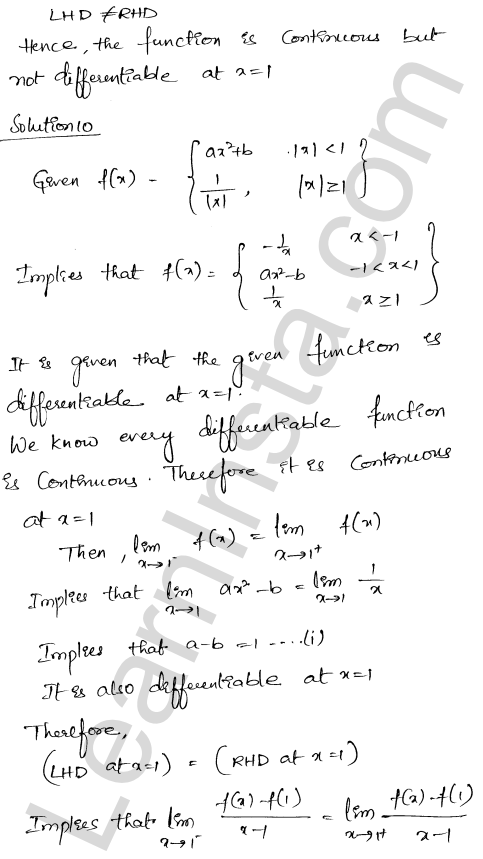 LHD ≠ RHD
Hence, the function is Continuous but
not differentiable at x=1
Solution 10
Given f(x) - { ax²+b .|x| < 1
1/|x| , |x| ≥ 1 }
Implies that f(x) = { -1/x x < -1
ax²-b -1 < x < 1
1/x x ≥ 1 }
It is given that the given function is
differentiable at x=1.
We know every differentiable function
is Continuous. Therefore it is Continuous
at x=1
Then, lim x→1⁻ f(x) = lim x→1⁺ f(x)
Implies that lim x→1 ax²-b = lim x→1 1/x
Implies that a-b = 1 ....(i)
It is also differentiable at x=1
Therefore,
(LHD at x=1) = (RHD at x=1)
Implies that lim x→1⁻ f(x)-f(1)/x-1 = lim x→1⁺ f(x)-f(1)/x-1
LearnInsta.com